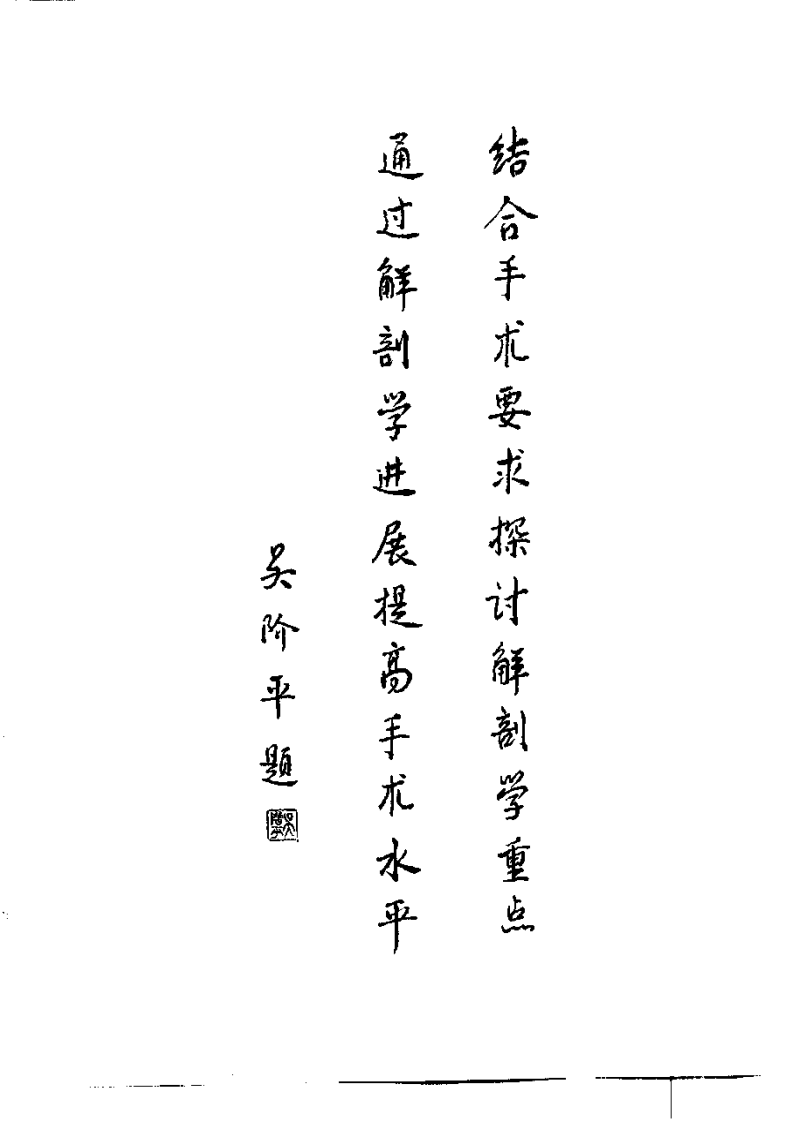 结合手术要求探讨解剖学重点
通过解剖学进展提高手术水平
吴阶平题